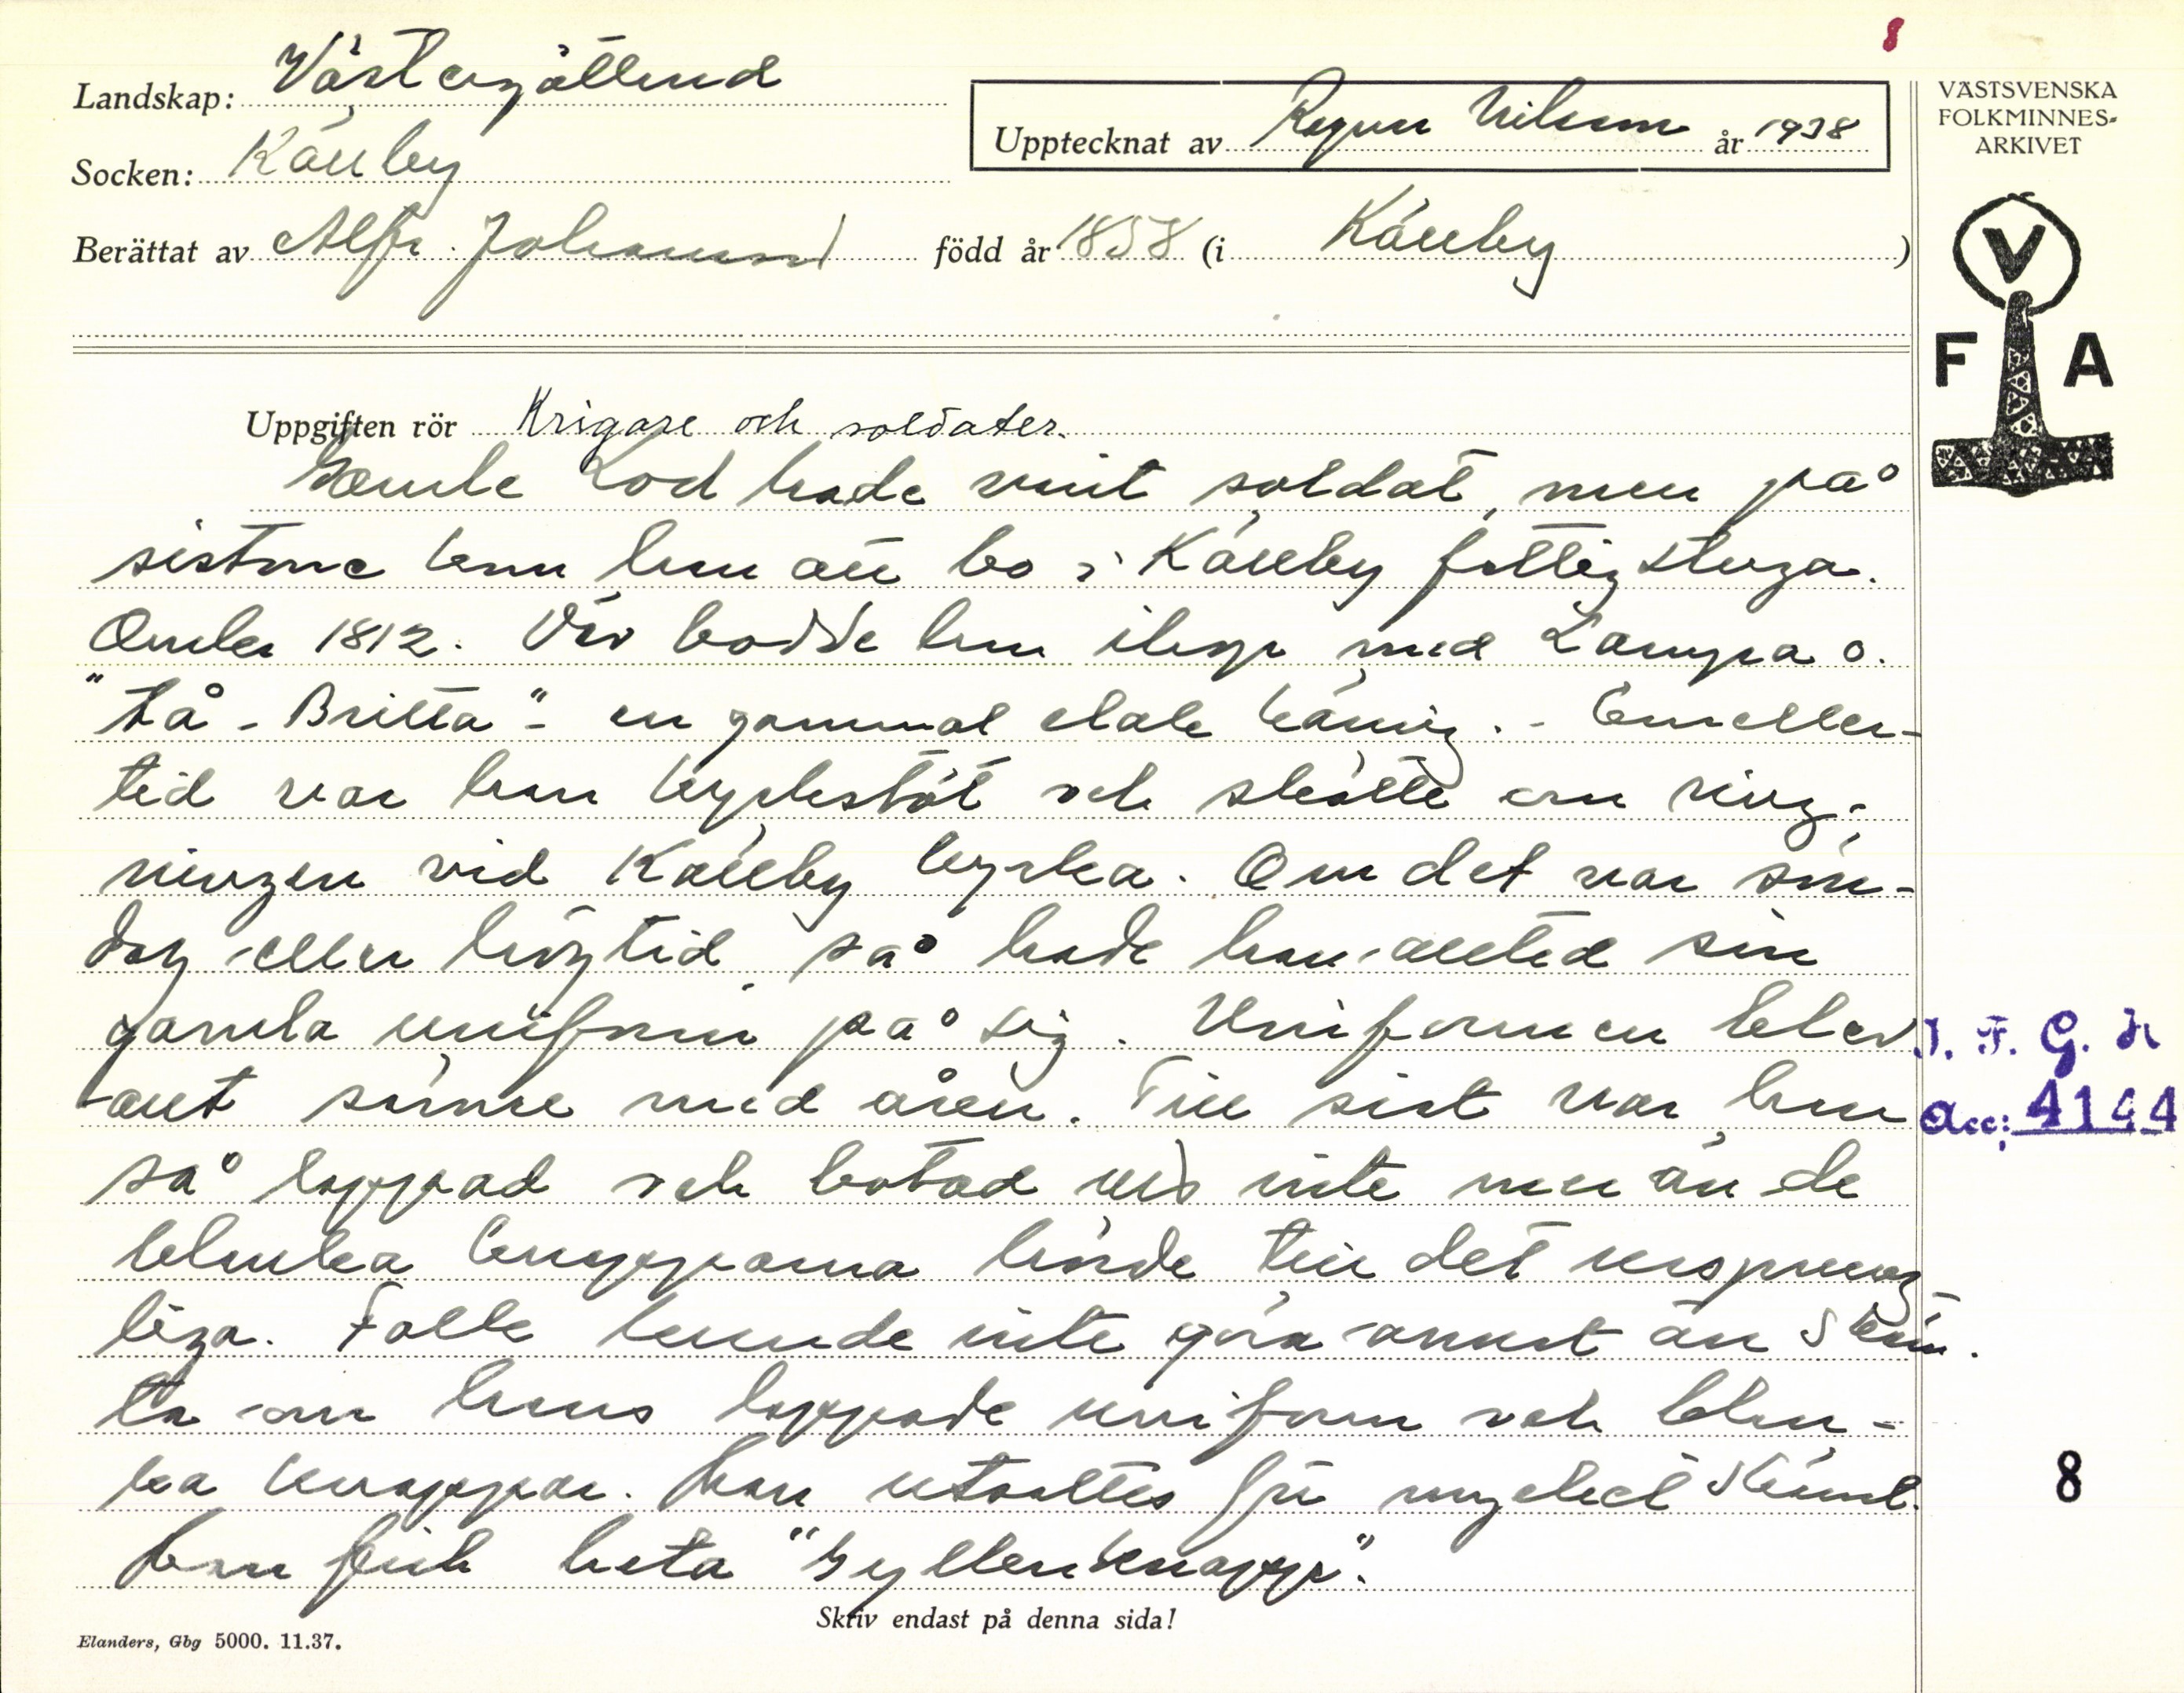 8
Landskap: Västergötland
Upptecknat av Ragnar Nilsson år 1938
VÄSTSVENSKA
FOLKMINNES-
ARKIVET
Socken: Källby
Berättat av Alfr. Johansson född år 1858 (i Källby)
V
F A
Uppgiften rör Krigare och soldater.
Gamle Lod hade varit soldat, men på
sistone kom han att bo i Källby fattigstuga.
Omkr 1812. Där bodde han ihop med Lampa o.
"Lå-Britta"- en gammal elak käring. - Emeller-
tid var han kyrkstöt och skötte om ring-
ningen vid Källby kyrka. Om det var sön-
dag eller högtid så hade han alltid sin
gamla uniform på sig. Uniformen blev
allt sämre med åren. Till sist var han
så lappad och botad att inte mer än de
blanka knapparna hörde till det ursprung
liga. Folk kunde inte göra annat än skäm-
ta om hans lappade uniform och blan-
ka knappar. Han utsattes för mycket skämt.
Han fick heta "Gyllenknapp".
I. F. G. H
Acc: 4144
8
Skriv endast på denna sida!
Elanders, Gbg 5000. 11.37.